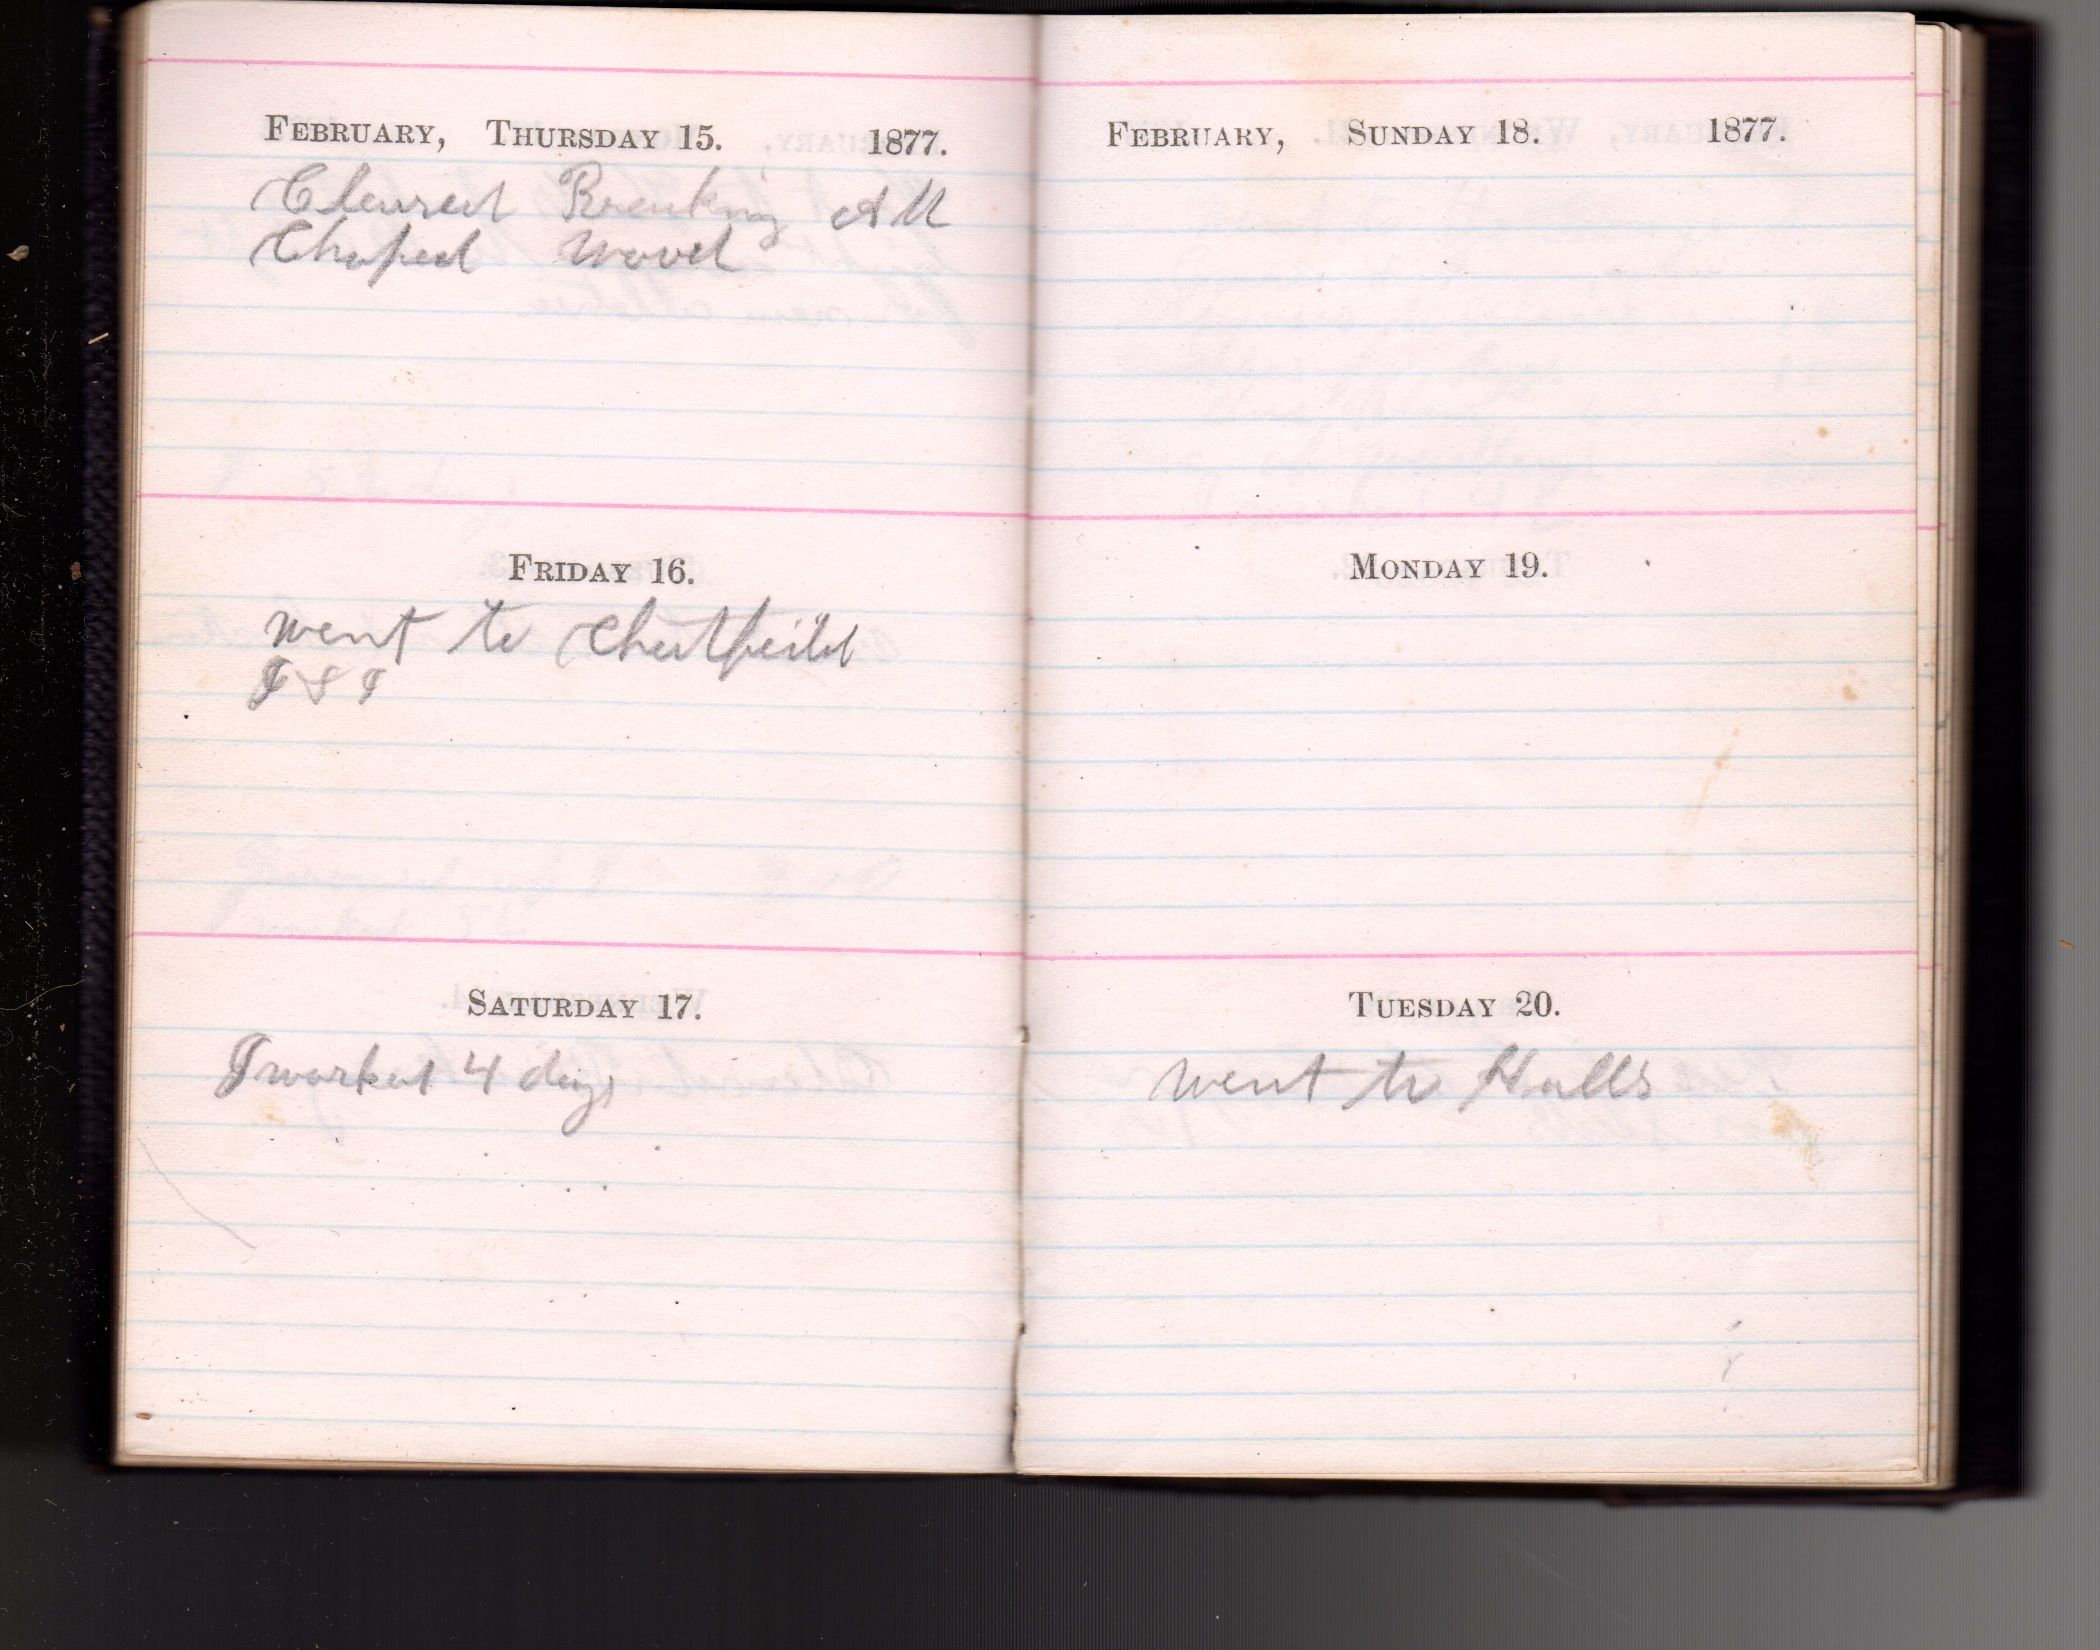 FEBRUARY, THURSDAY 15. 1877.
Cleared Breaking AM
Choped wood
FRIDAY 16.
went to Chestfeild
SATURDAY 17.
I worked 4 days
FEBRUARY, SUNDAY 18. 1877.
MONDAY 19.
TUESDAY 20.
went to Halls